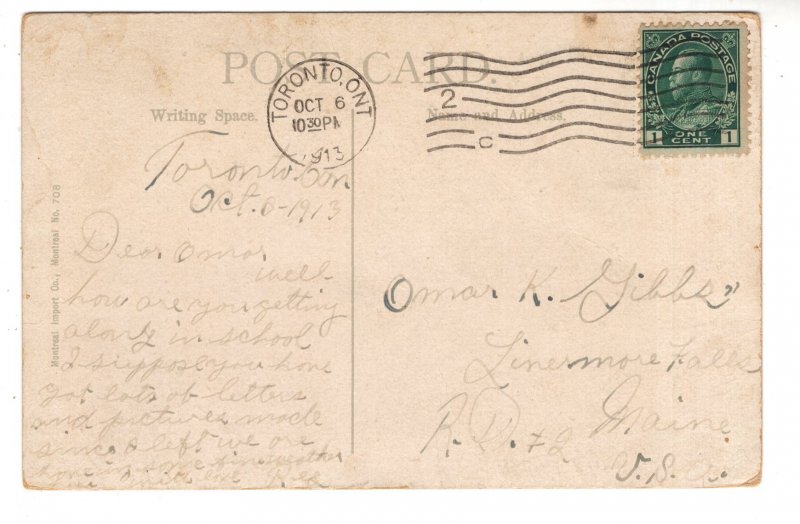 POST CARD.
TORONTO, ONT
OCT 6
10 30 PM
1913
2
C
CANADA POSTAGE
1 ONE CENT 1
Writing Space.
Name and Address.
Montreal Import Co., Montreal No. 708
Toronto, On
Oct. 6-1913
Dear Omar
well
how are you getting
along in school
I suppose you have
got lots of letters
and pictures made
since I left we are
weather
Omar K. Gibbs
Linermore Falls
Maine
R. D. #2
U. S. A.